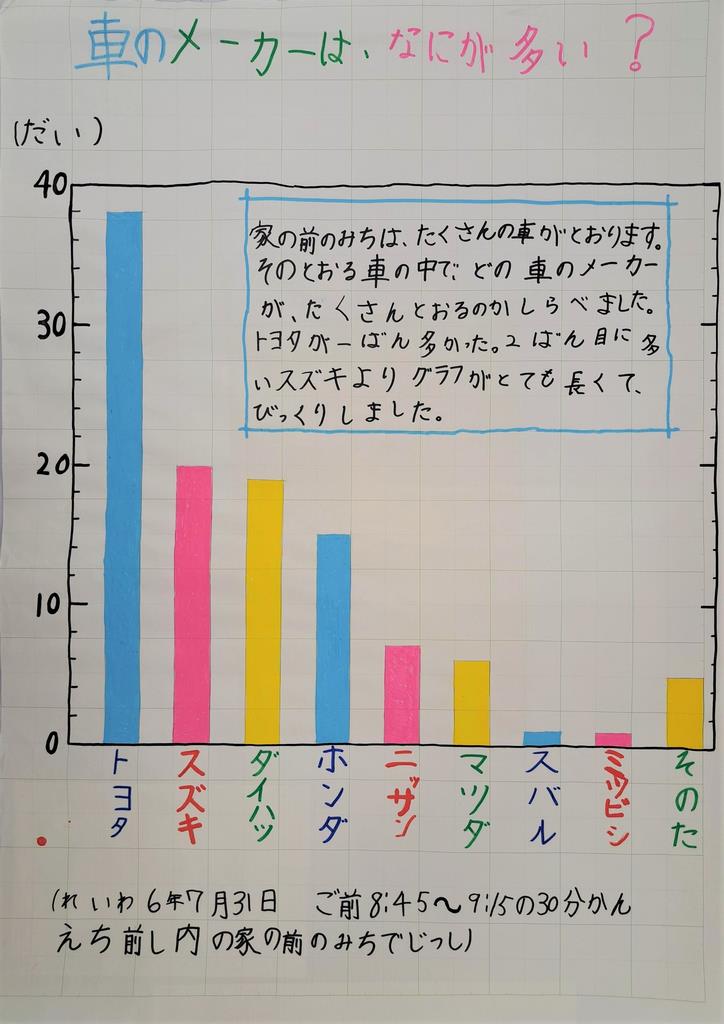 車のメーカーは、なにが多い？
(だい)
40
30
20
10
0
家の前のみちは、たくさんの車がとおります。
そのとおる車の中で、どの車のメーカー
が、たくさんとおるのかしらべました。
トヨタが一ばん多かった。2ばん目に多
いスズキよりグラフがとても長くて、
びっくりしました。
トヨタ
スズキ
ダイハツ
ホンダ
ニッサン
マツダ
スバル
ミツビシ
そのた
(れいわ6年7月31日 ご前8:45～9:15の30分かん
えち前し内の家の前のみちでじっし)